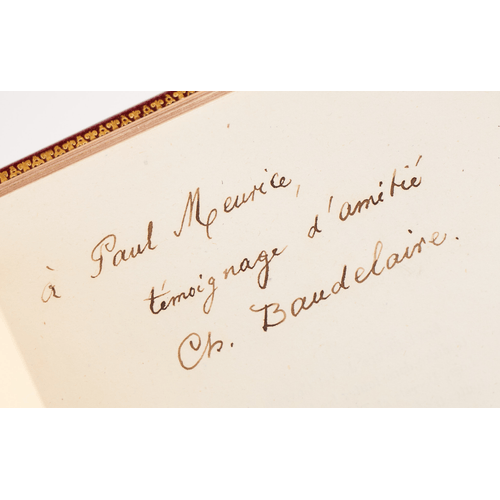 à Paul Meurice,
témoignage d'amitié
Ch. Baudelaire.